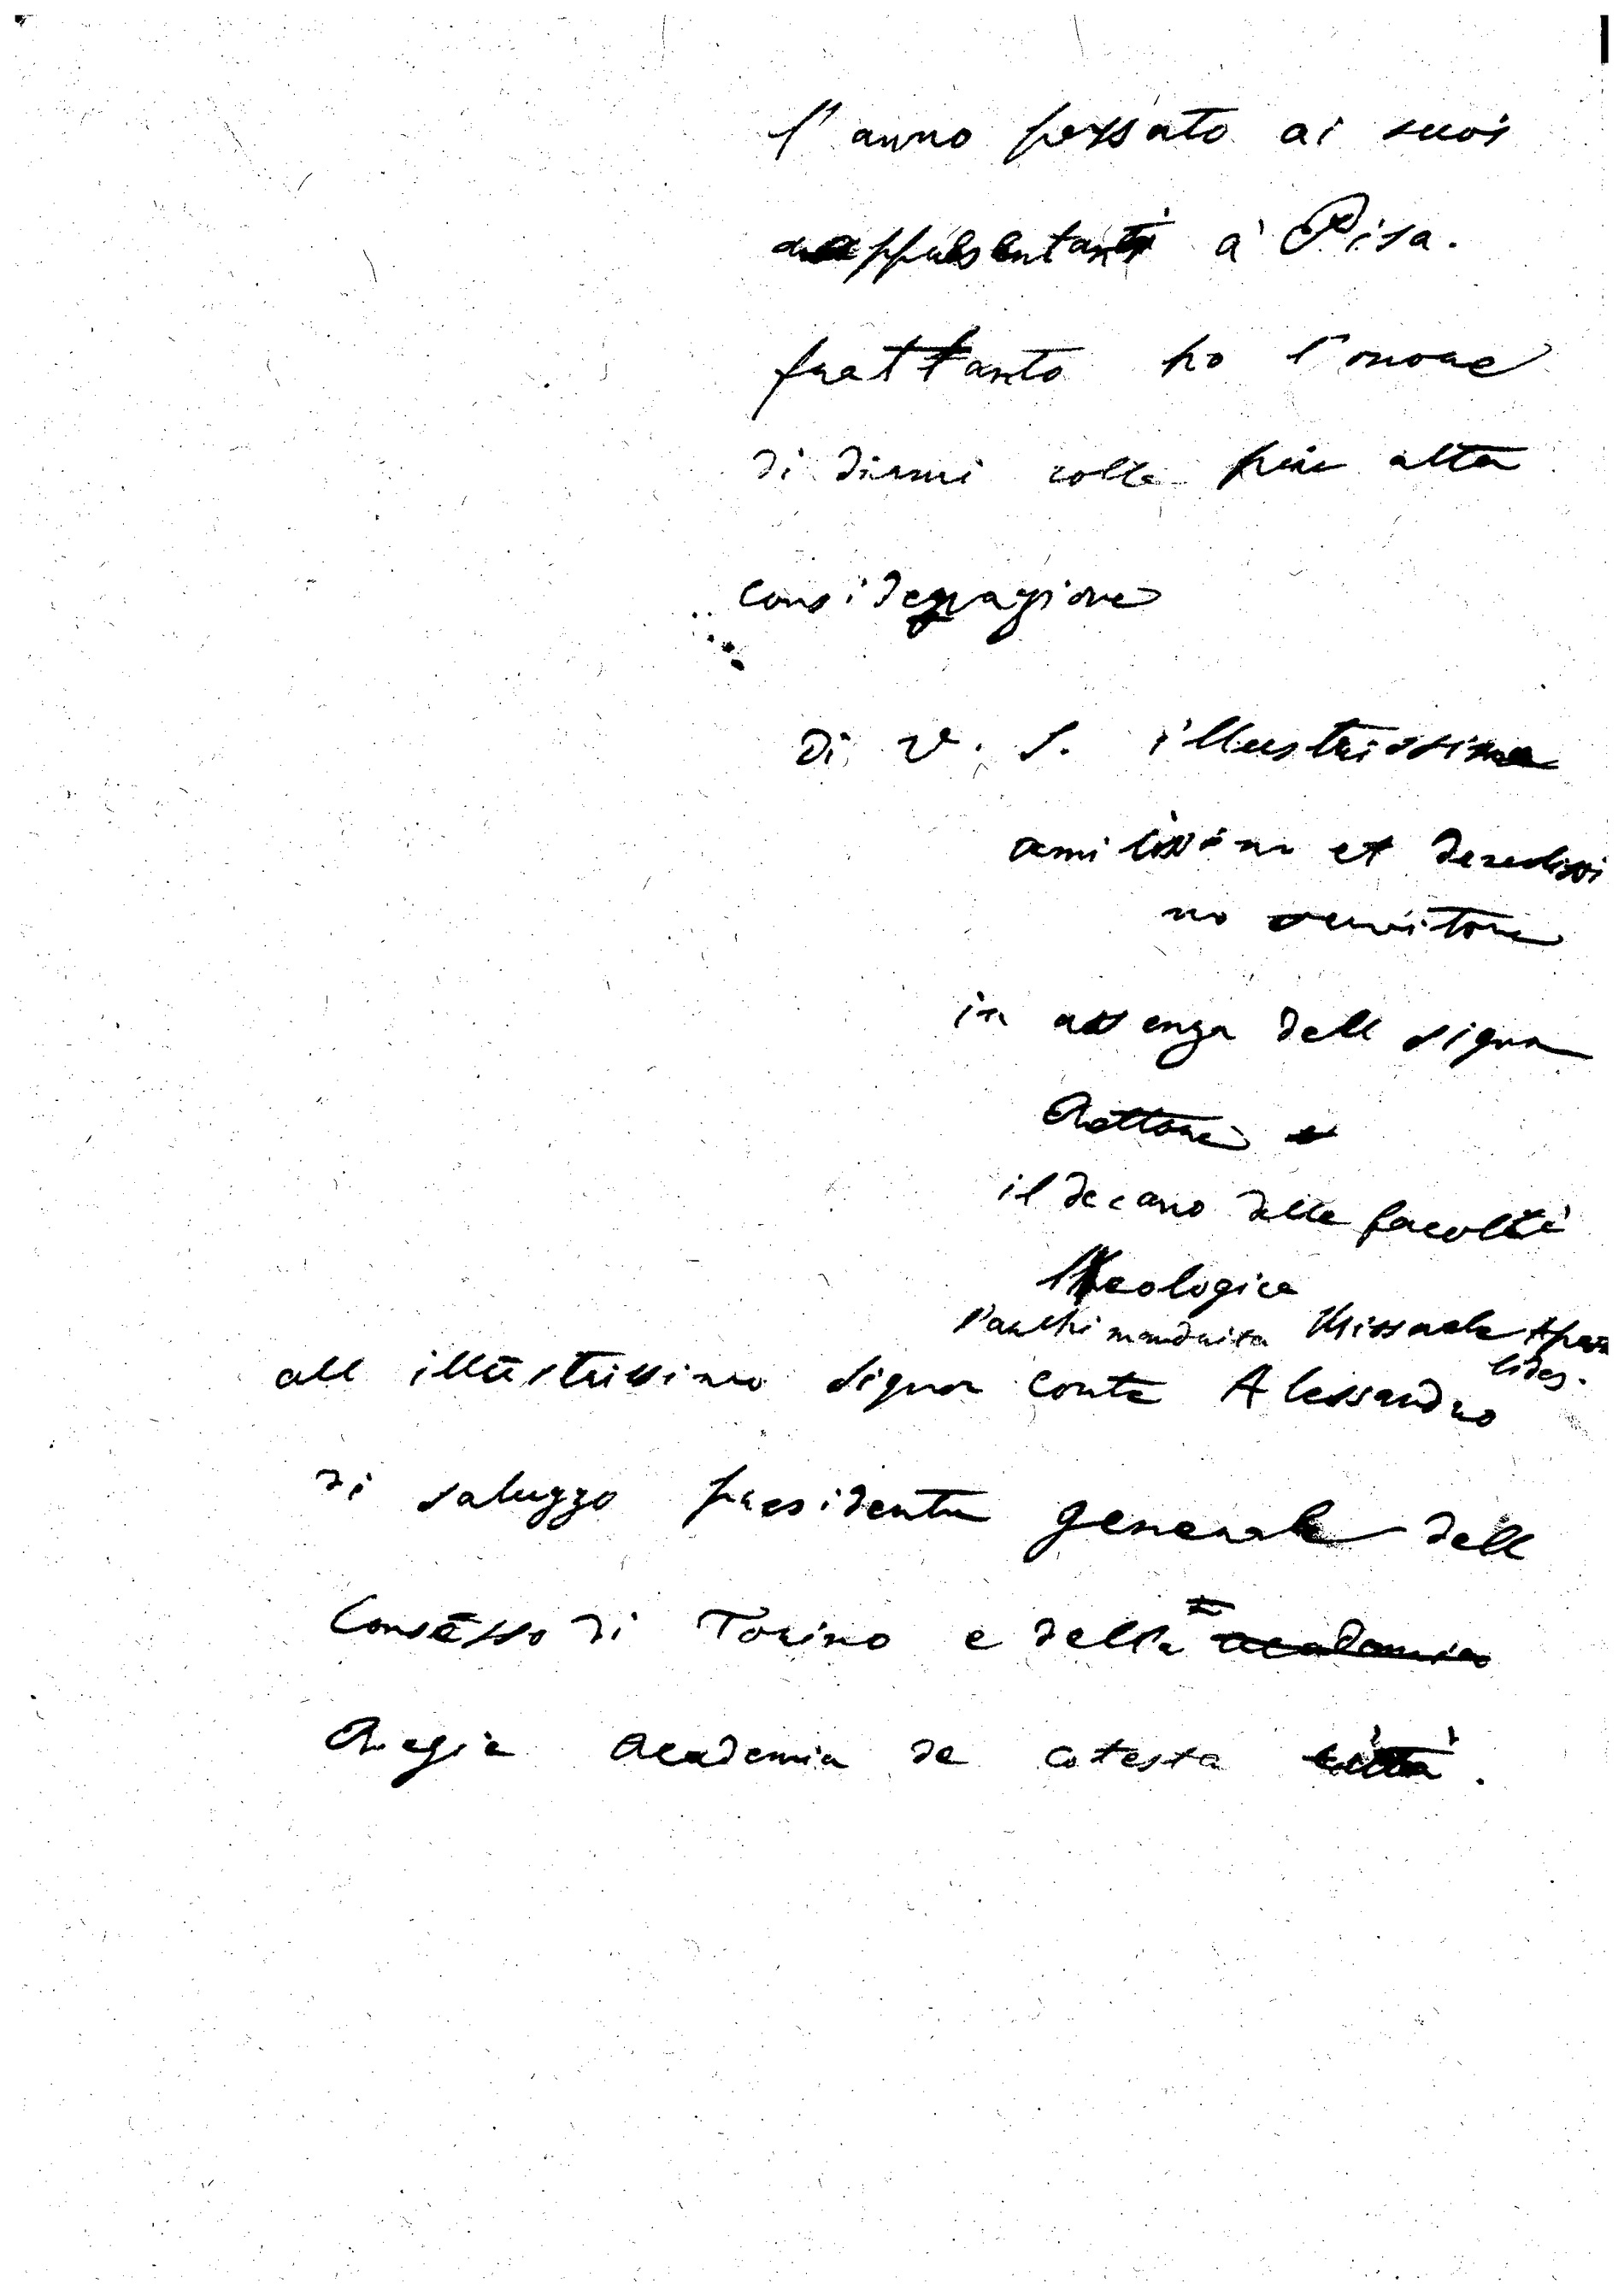 l'anno passato ai suoi
rappresentanti a Pisa.
frattanto ho l'onore
di dirmi colla piu alta
considerazione
Di V. S. illustrissima
umilissimo et devedissi
mo servitore
in assenza dell signor
Rettore
il decano della facoltà
theologica
l'archimandrita Missaele Aposto
lides.
all illustrissimo signor conte Alessandro
di saluzzo presidente generale dell
Consesso di Torino e della academia
Regia academia de cotesta città.